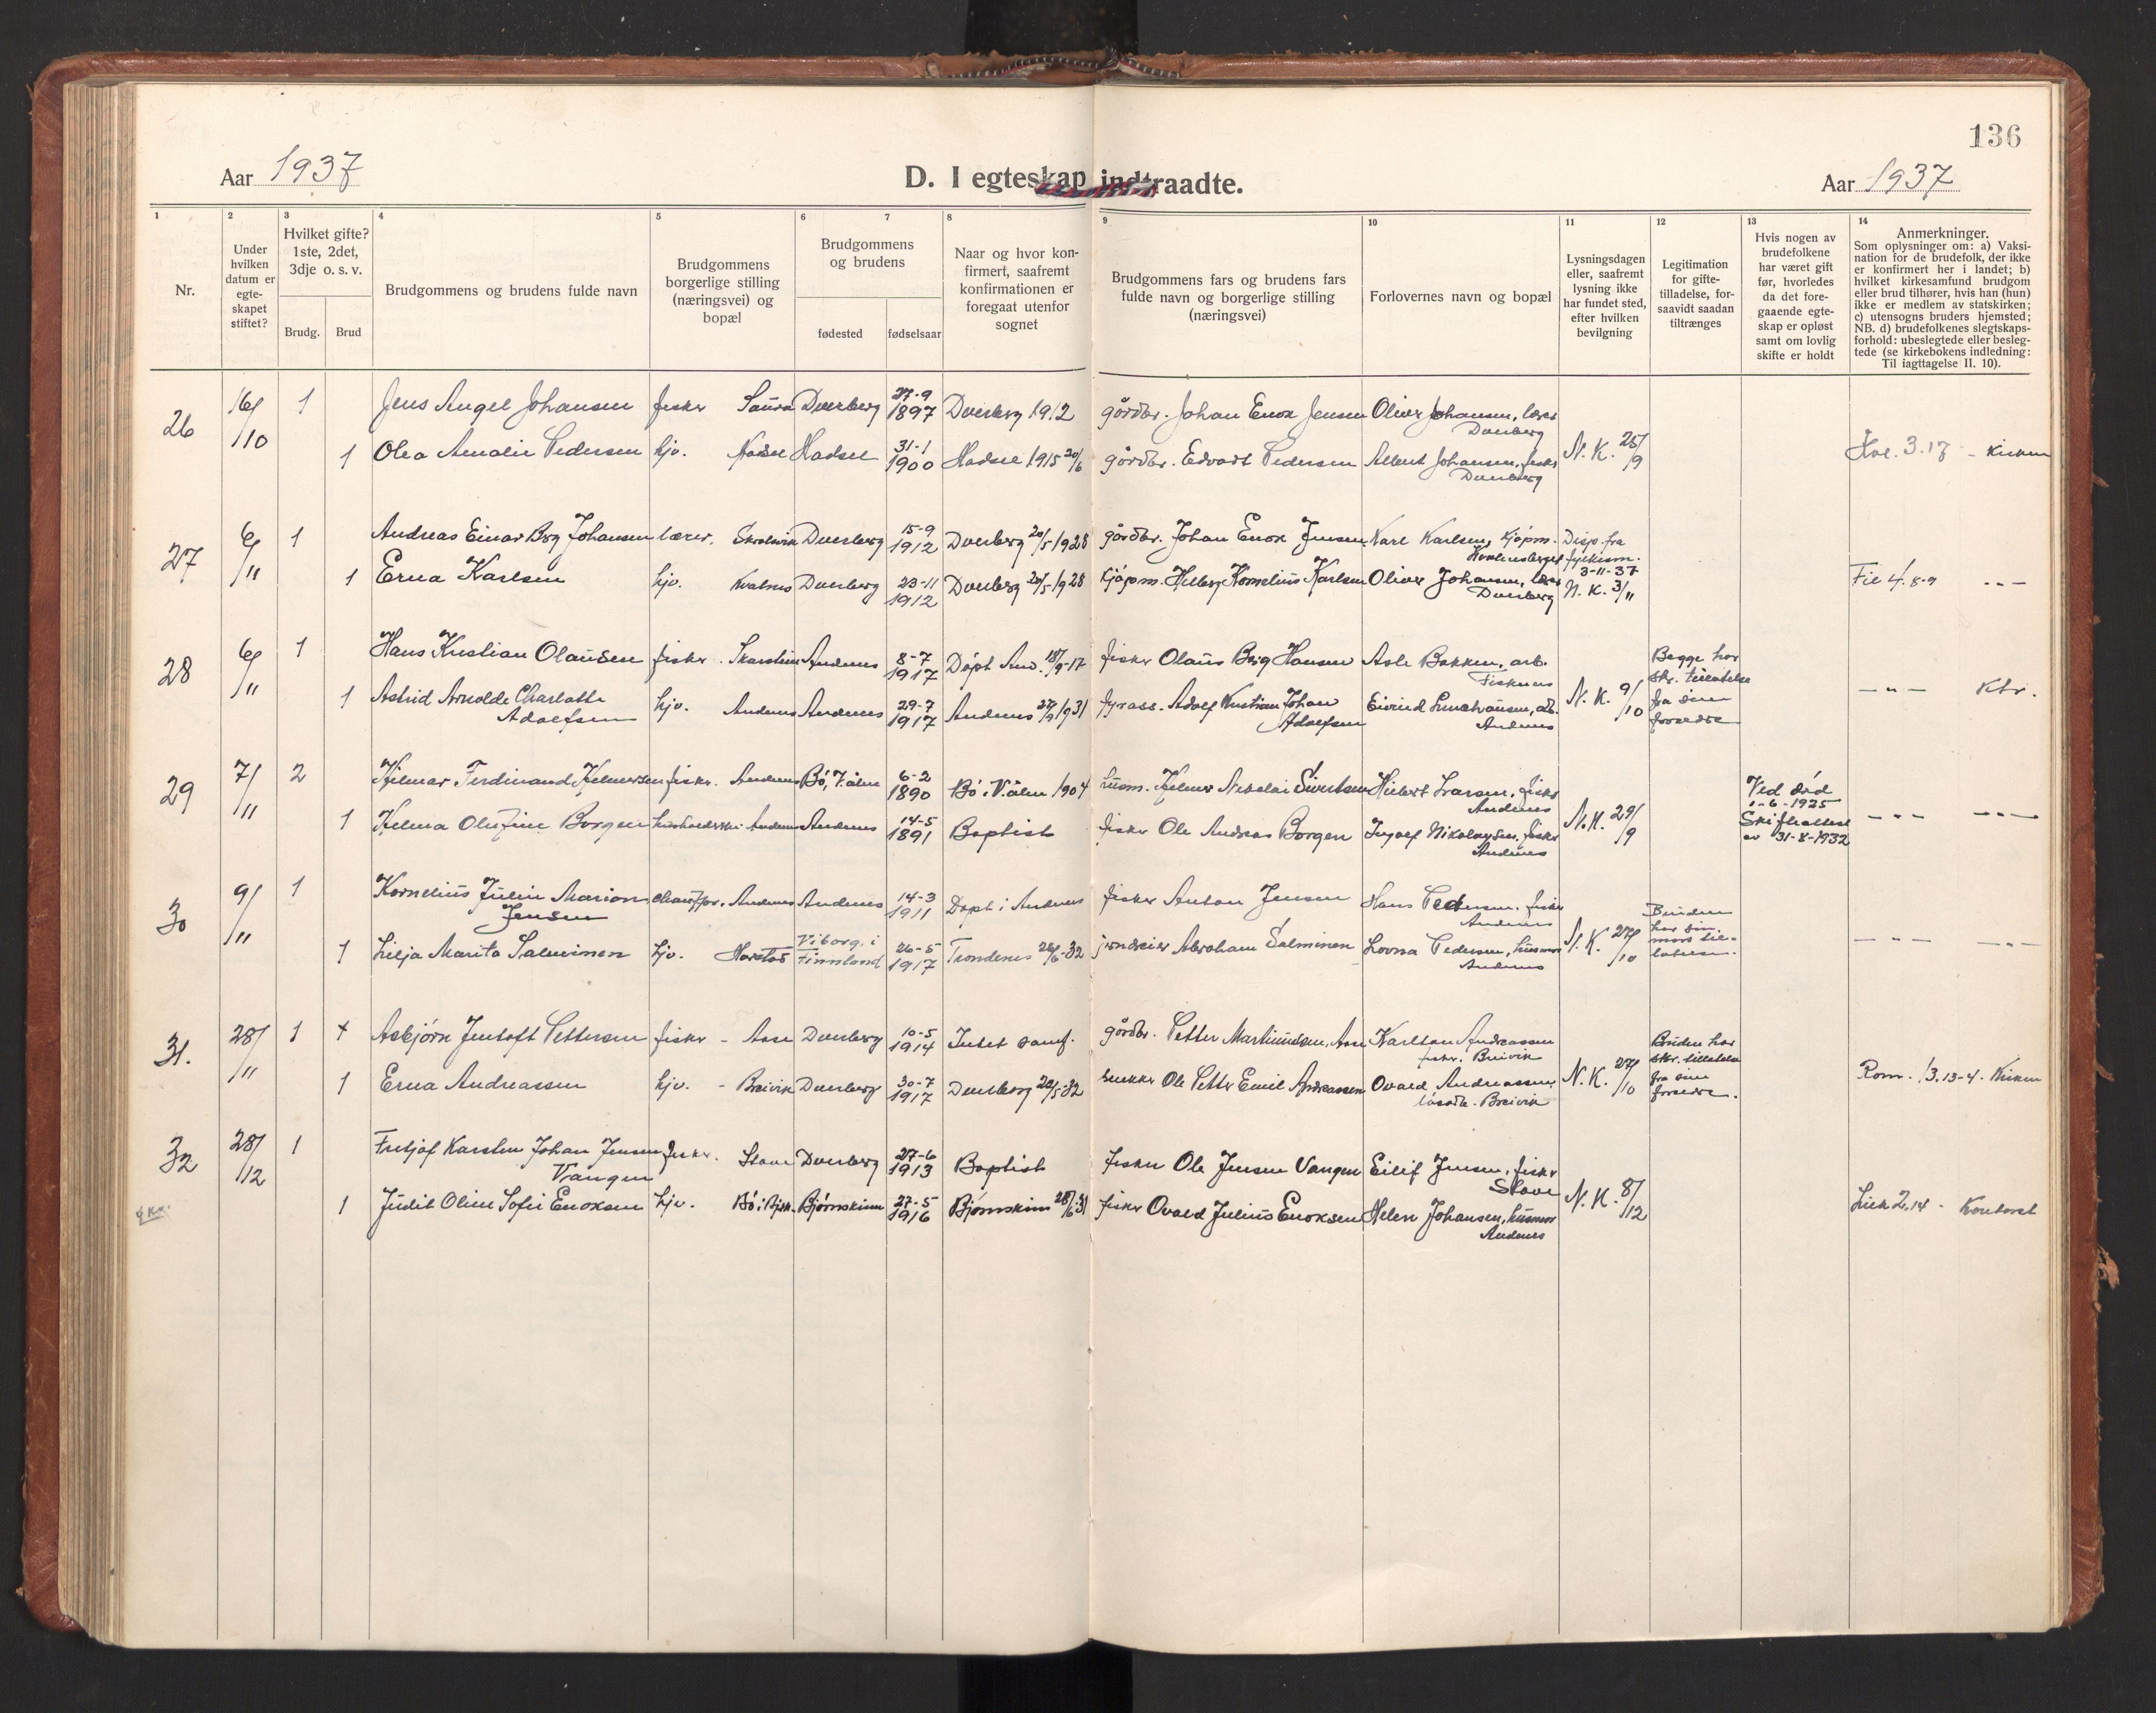 136
Aar 1937
D. I egteskap indtraadte.
Aar 1937
1 2 3 4 5 6 7 8 9 10 11 12 13 14
Nr.
Under hvilken datum er egte- skapet stiftet?
Hvilket gifte? 1ste, 2det, 3dje o. s. v.
Brudg. Brud
Brudgommens og brudens fulde navn
Brudgommens borgerlige stilling (næringsvei) og bopæl
Brudgommens og brudens
fødested fødselsaar
Naar og hvor kon- firmert, saafremt konfirmationen er foregaat utenfor sognet
Brudgommens fars og brudens fars fulde navn og borgerlige stilling (næringsvei)
Forlovernes navn og bopæl
Lysningsdagen eller, saafremt lysning ikke har fundet sted, efter hvilken bevilgning
Legitimation for gifte- tilladelse, for- saavidt saadan tiltrænges
Hvis nogen av brudefolkene har været gift før, hvorledes da det fore- gaaende egte- skap er opløst samt om lovlig skifte er holdt
Anmerkninger.
Som oplysninger om: a) Vaksi- nation for de brudefolk, der ikke er konfirmert her i landet; b) hvilket kirkesamfund brudgom eller brud tilhører, hvis han (hun) ikke er medlem av statskirken; c) utensogns bruders hjemsted; NB. d) brudefolkenes slegtskaps- forhold: ubeslegtede eller besleg- tede (se kirkebokens indledning: Til iagttagelse II. 10).
26 16/10 1 Jens Angel Johansen fisker Saura Dverberg 27-9 1897 Dverberg 1912 gårdbr. Johan Enox Jensen Oliver Johansen, lærer Dverberg
1 Olea Amalie Pedersen hjv. Hadsel Hadsel 31-1 1900 Hadsel 1915 20/6 gårdbr. Edvart Pedersen Albert Johansen, fisker Dverberg N. K. 25/9 3.17 - Kirken
27 6/11 1 Andreas Einar Berg Johansen lærer. Dverberg 15-9 1912 Dverberg 20/5 1928 gårdbr. Johan Enox Jensen Karl Karlsen, kjøpm. Disp. fra fylkesm. 3-11-37
1 Erna Karlsen hjv. Kvalnes Dverberg 23-11 1912 Dverberg 20/5 1928 kjøpm. Helberg Kornelius Karlsen Oliver Johansen, lærer Dverberg N. K. 3/11 Fil 4. 8-9 - " -
28 6/11 1 Hans Kristian Olausen fisker. Skarstein Andenes 8-7 1917 Døpt And. 18/9-17 fisker Olaus Berg Hansen Asle Bakken, arb. Fiskenes Begge har skr. tillatelse fra sine foreldre
1 Astrid Arnolde Charlotte Adolfsen hjv. Andenes Andenes 29-7 1917 Andenes 27/9 1931 fyrass. Adolf Kristian Johan Adolfsen Eivind arb. Andenes N. K. 9/10 - " - Ktr.
29 7/11 2 Hjelmar Ferdinand Hjelmersen fisker. Andenes Bø, V.ålen 6-2 1890 Bø i V.ålen 1904 husm. Hjelmer Nikolai Sivertsen Hilbert Larsen, fisker Andenes Ved død 1-6-1925 Skifteattest av 31-8-1932
1 Hjelma Olufine Borgen husholderske Andenes Andenes 14-5 1891 Baptist fisker Ole Andreas Borgen Ingolf Nikolaysen, fisker Andenes N. K. 29/9 - " - - " -
30 9/11 1 Kornelius Julin Marion Jensen chauffør. Andenes Andenes 14-3 1911 Døpt i Andenes fisker Anton Jensen Hans Pedersen. fisker Andenes Bruden har sin mors til- latelse.
1 Lilja Marita Salminen hjv. Harstad Viborg, i Finnland 26-5 1917 Trondenes 26/6-32 jerndreier Abraham Salminen Lovna Pedersen, husmor Andenes N. K. 27/10 - " - - " -
31. 28/11 1 + Asbjørn Jentoft Pettersen fisker - Aase Dverberg 10-5 1914 Intet samf. gårdbr. Petter Martinussen, Aase Karlton Andreassen fisker. Breivik Bruden har skr. tillatelse fra sine foreldre.
1 Erna Andreassen hjv. - Breivik Dverberg 30-7 1917 Dverberg 22/5-32 snekker Ole Petter Emil Andreassen Ovald Andreassen, Breivik N. K. 27/10 Rom. 13.13-4. Kirken
32 28/12 1 Fritjof Karsten Johan Jensen Vangen fisker. Stave Dverberg 27-6 1913 Baptist fisker Ole Jensen Vangen Eilif Jensen, fisker Stave
1 Judit Oline Sofie Enoksen hjv. Bø i Bjsk. Bjørnskinn 27-5 1916 Bjørnskinn 28/6 31 fisker Ovald Julius Enoksen Helen Johansen, husmor Andenes N. K. 8/12 Luk 2.14 - Kontoret